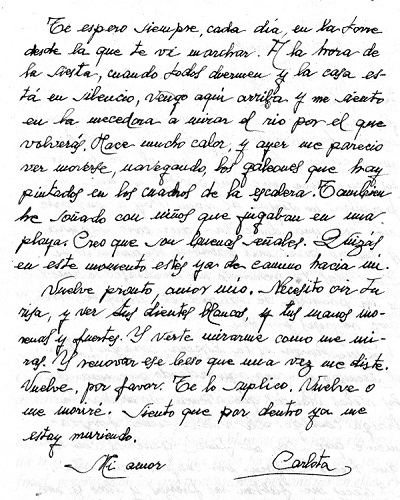 Te espero siempre, cada día, en la torre
desde la que te vi marchar. A la hora de
la siesta, cuando todos duermen y la casa es-
tá en silencio, vengo aquí arriba y me siento
en la mecedora a mirar el río por el que
volverás. Hace mucho calor, y ayer me pareció
ver moverse, navegando, los galeones que hay
pintados en los cuadros de la escalera. También
he soñado con niños que jugaban en una
playa. Creo que son buenas señales. Quizás
en este momento estés ya de camino hacia mí.
Vuelve pronto, amor mío. Necesito oír tu
risa, y ver tus dientes blancos, y tus manos mo-
renas y fuertes. Y verte mirarme como me mi-
ras. Y renovar ese beso que una vez me diste.
Vuelve, por favor. Te lo suplico. Vuelve o
me moriré. Siento que por dentro ya me
estoy muriendo.
Mi amor
Carlota